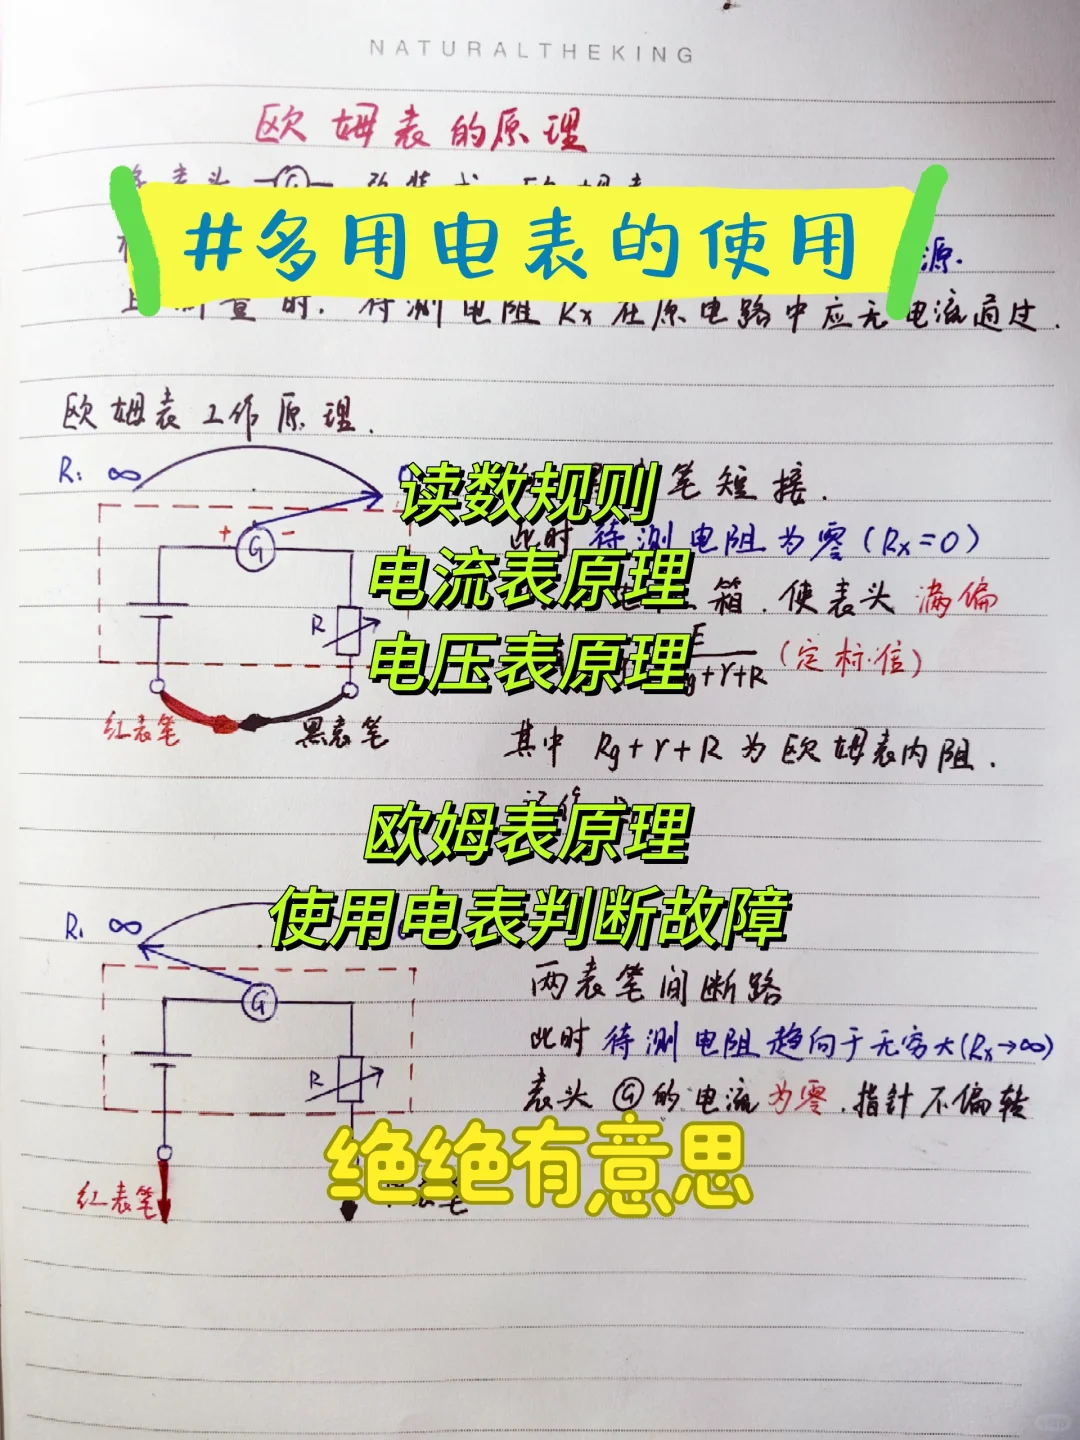 NATURALTHEKING
欧姆表的原理
#多用电表的使用
源.
待测电阻Rx在原电路中应无电流通过.
欧姆表工作原理.
R: ∞
笔短接.
读数规则
此时待测电阻为零(Rx=0)
+ G -
电流表原理
箱.使表头满偏
R
电压表原理
E
g+r+R (定标.值)
红表笔 黑表笔
其中 Rg+r+R 为欧姆表内阻.
欧姆表原理
使用电表判断故障
R: ∞
两表笔间断路
G
此时待测电阻趋向于无穷大(Rx→∞)
R
表头 G 的电流为零.指针不偏转
绝绝有意思
红表笔